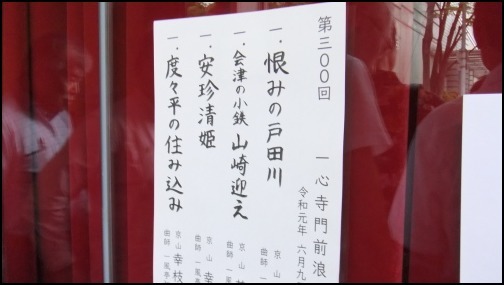 第三〇〇回
一心寺門前浪
令和元年 六月九
一.恨みの戸田川
京山
曲師 一
一.会津の小鉄 山崎迎え
京山
曲師 一風
一.安珍清姫
京山 幸
曲師 一風
一.度々平の住み込み
京山 幸枝
曲師 一風亭